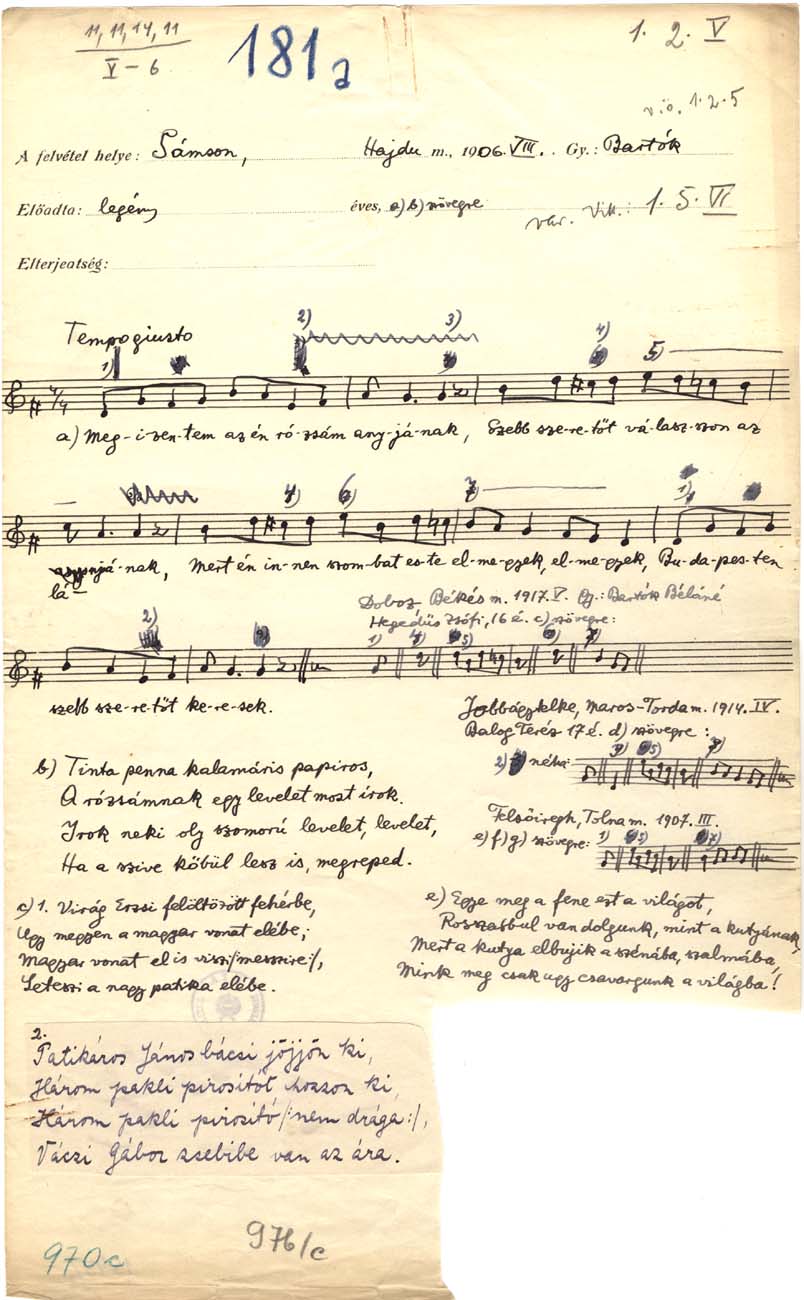 11, 11, 14, 11
V – 6
181a
1. 2. V
v.ö. 1·2·5
A felvétel helye: Sámson, Hajdu m., 1906. VIII. Gy.: Bartók
Előadta: legény éves, a) b) szövegre
var. Vik.: 1. 5. VI
Elterjedtség:
Tempo giusto
1) 2) 3) 4) 5)
7/4
a) Meg-i-zen-tem az én ró-zsám any-já-nak, Szebb sze-re-tőt vá-lasz-szon az
4) 6) 7) 1)
lá-njá-nak, Mert én in-nen szom-bat es-te el-me-gyek, el-me-gyek, Bu-da-pes-ten
Doboz Békés m. 1917. V. Gy.: Bartók Béláné
Hegedüs Zsófi, 16 é. c) szövegre:
2) 1) 4) 5) 6) 7)
szebb sze-re-tőt ke-re-sek.
Jobbágytelke, Maros-Torda m. 1914. IV.
Balog Teréz 17 é. d) szövegre:
2) néha: 5) 7)
b) Tinta penna kalamáris papiros,
A rózsámnak egy levelet most irok.
Irok neki oly szomorú levelet, levelet,
Ha a szive kőbül lesz is, megreped.
Felsőiregh, Tolna m. 1907. III.
e) f) g) szövegre: 1) 5) 7)
c) 1. Virág Erzsi felöltözött fehérbe,
Ugy megyen a magyar vonat elébe;
Magyar vonat el is viszi /: messzire :/,
Leteszi a nagy patika elébe.
e) Egye meg a fene ezt a világot,
Rosszabbul van dolgunk, mint a kutyának,
Mert a kutya elbujik a szénába, szalmába,
Mink meg csak ugy csavargunk a világba!
2.
Patikáros János bácsi jőjjön ki,
Három pakli pirosítót hozzon ki,
Három pakli pirosító /: nem drága :/,
Váczi Gábor zsebibe van az ára.
970c
976/c